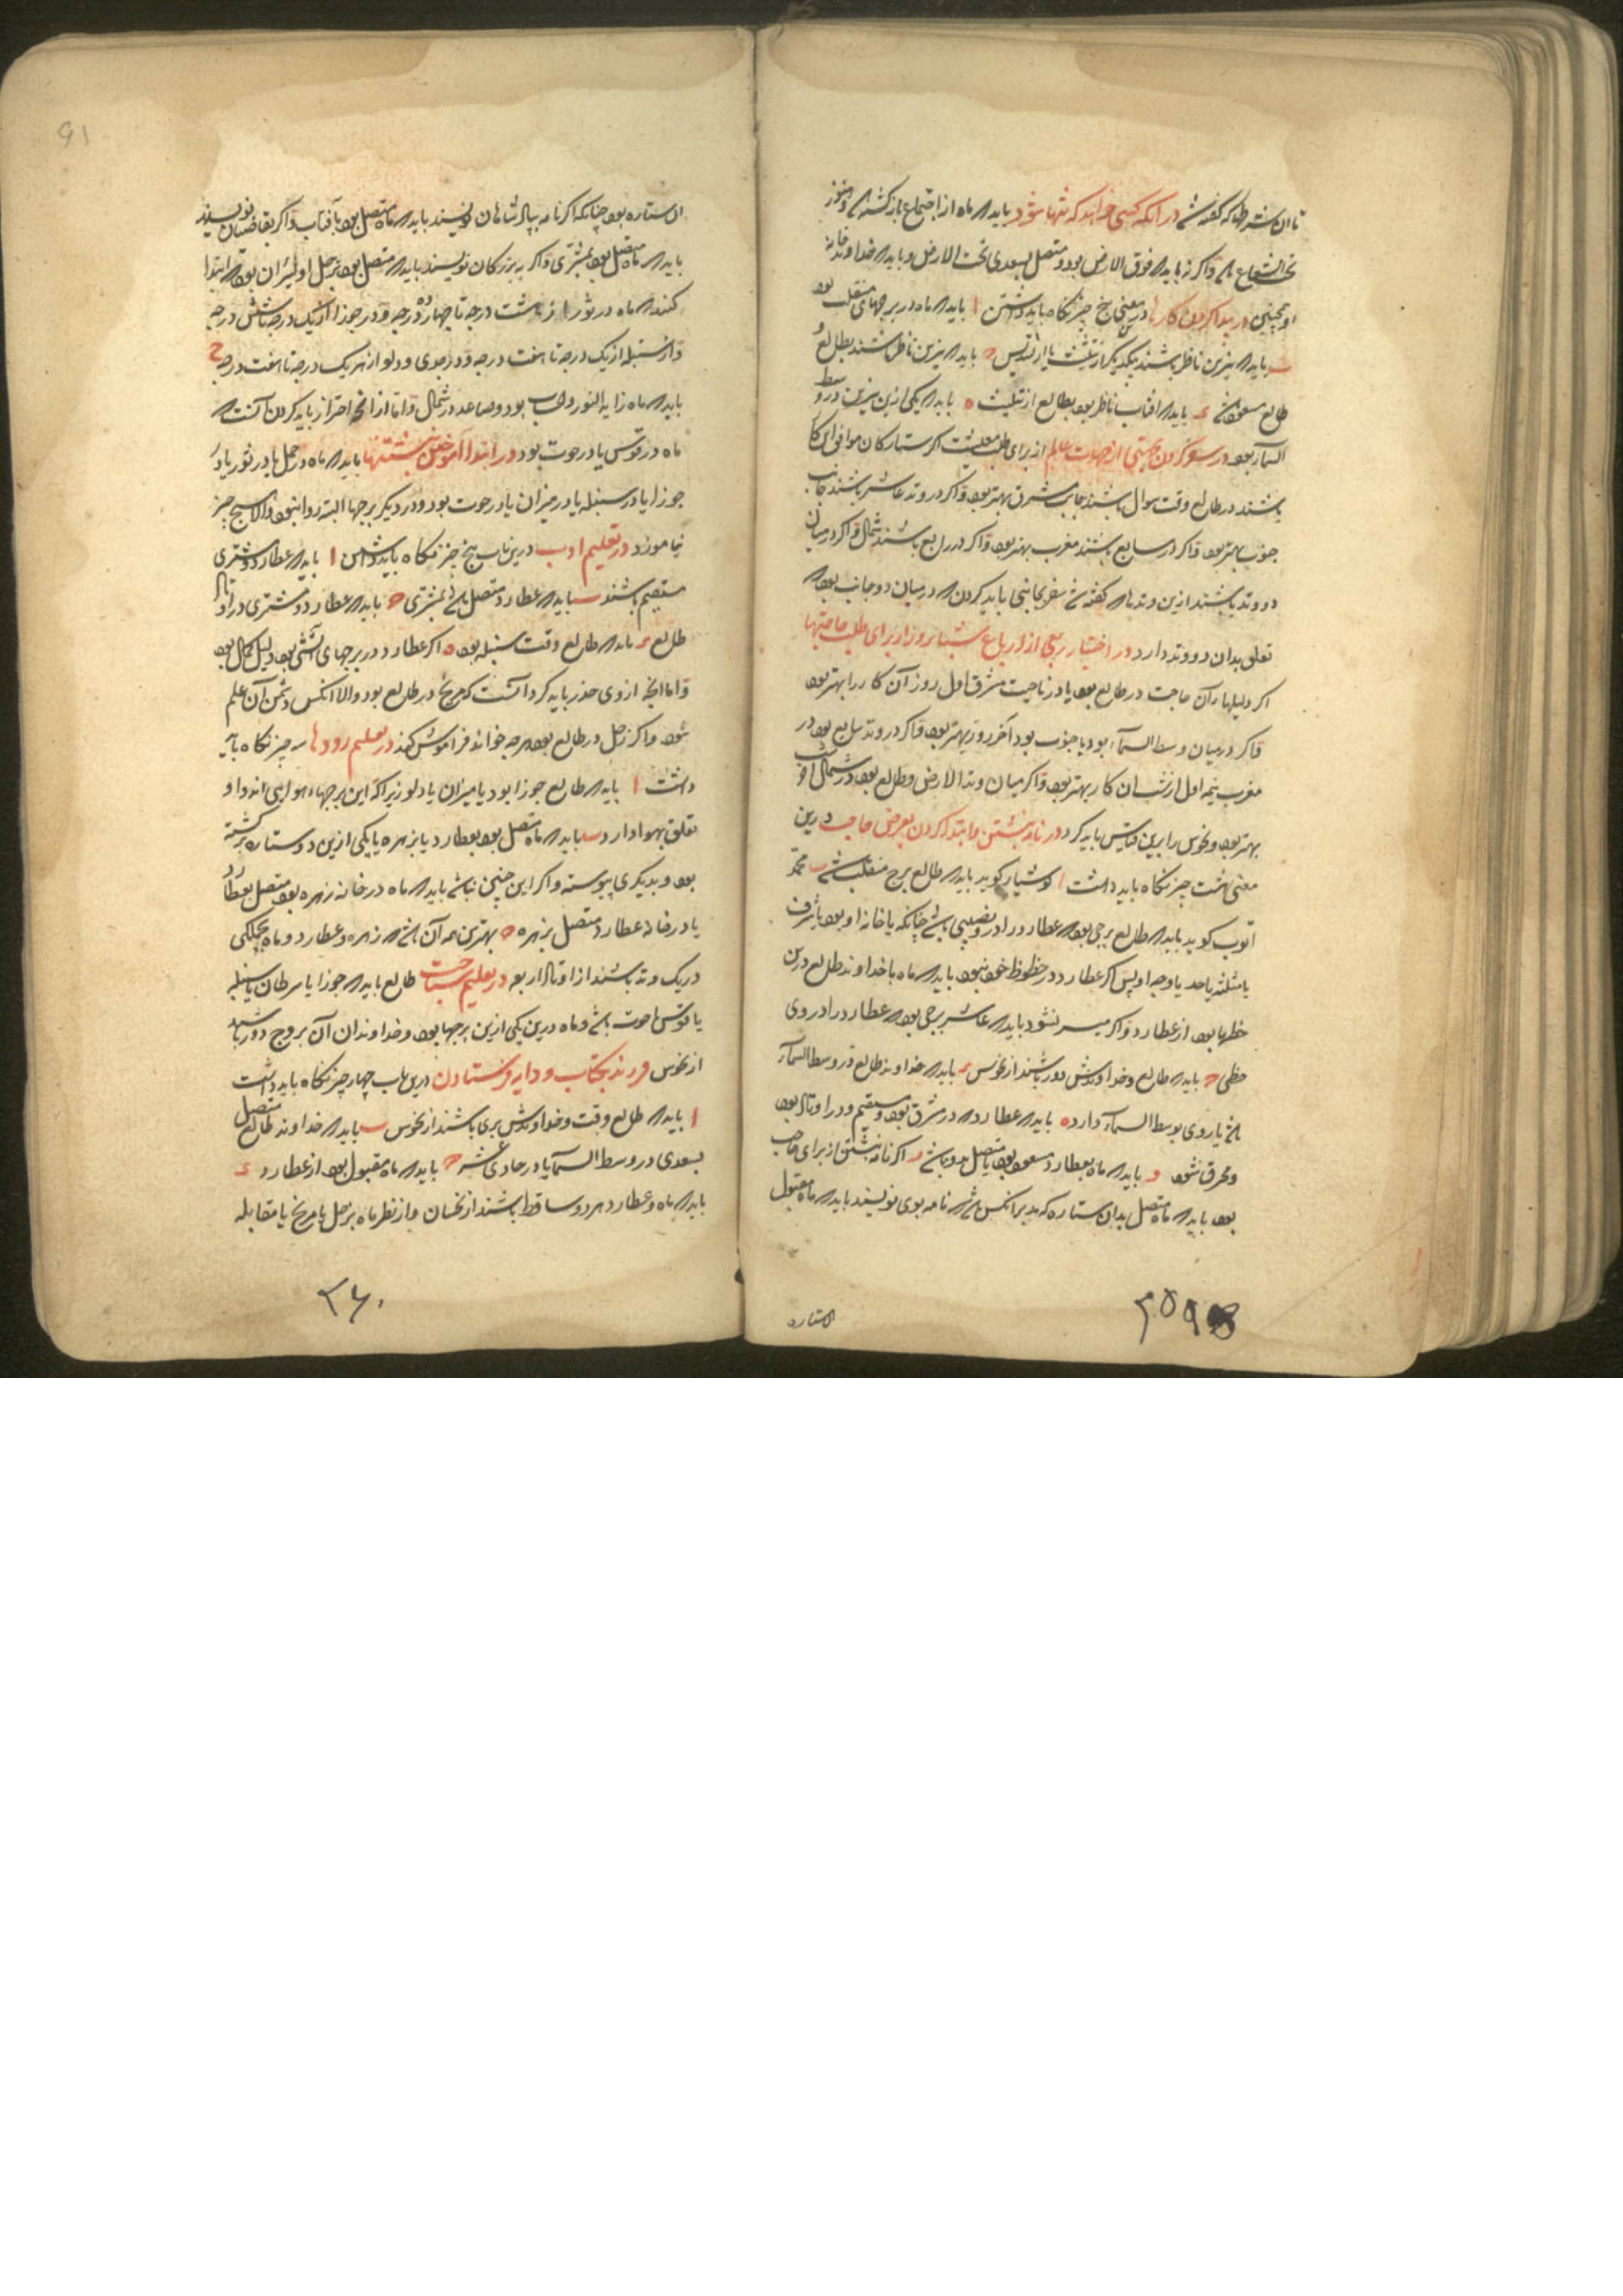 با ان شرطها که گفته شد در آنکه کسی خواهد که تنها شود باید که ماه از اجتماع بازگشته و هنوز
تحت الشعاع باشد و اگر نه باید که فوق الارض بود و متصل بسعدی تحت الارض و باید که خداوند خانه
او همچنین در پیدا کردن کارها درین معنی پنج چیز نگاه باید داشتن ا باید که ماه در برجهای منقلب بود
ب باید که نیرین ناظر باشند بیکدیگر از تثلیث یا از تسدیس ج باید که نیرین ناظر باشند بطالع
طالع مسعود د باید که افتاب ناظر بود بطالع از تثلیث ه باید که یکی ازین نیرین در وسط
السمآ بود در سفر کردن بجستن از جهات عالم از برای طلب معیشت اگر ستارگان موافق ای کار
باشند در طالع وقت سوال باشند جانب مشرق بهتر بود و اگر در وتد عاشر باشند جانب
جنوب بهتر بود و اگر در سابع باشند مغرب بهتر بود و اگر در رابع باشند شمال و اگر در میان
دو وتد باشند ازین وتدها که گفته شد سفر بجانبی باید کردن که در میان دو جانب بود که
تعلق بدان دو وتد دارد در اختیار ربعی از ارباع شبانروز از برای طلب حاجتها
اگر دلیلها آن حاجت در طالع بود یا در ناحیت مشرق اول روز آن کار را بهتر بود
و اگر در میان وسط السمآء بود یا جنوب بود آخر روز بهتر بود و اگر در وتد سابع بود در
مغرب نیمه اول از شب آن کار بهتر بود و اگر میان وتد الارض و طالع بود در شمال آخر شب
بهتر بود و نحوس را برین قیاس باید کرد در نامه نبشتن و ابتدا کردن بعرض حاجت درین
معنی هشت چیز نگاه باید داشت ا کوشیار گوید باید که طالع برج منقلب باشد ب محمد
ایوب گوید باید که طالع برجی بود که عطارد را در و نصیبی باشد چنانکه یا خانه او بود یا شرف
یا مثلثه یا حد یا وجه او پس اگر عطارد در حظوظ خود نبود باید که ماه با خداوند طالع درین
حظها بود از عطارد و اگر میسر نشود باید که عاشر برجی بود که عطارد را در وی
حظی ج باید که طالع و خداوندش دور باشند از نحوس د باید که خداوند طالع در وسط السمآء
باشد یا روی بوسط السمآء دارد ه باید که عطارد در مشرق بود و مستقیم و در اوتاد بود
و محرق نشود و باید که ماه بعطارد مسعود بود یا متصل بدو باشد ز اگر نامه نبشتن از برای حاجت
بود باید که ماه متصل بدان ستاره که مدبر آنکس باشد که نامه بوی نویسند باید که ماه مقبول
ان ستاره
۲۵۹
ان ستاره بود چنانکه اگر نامه بپادشاهان نویسند باید که ماه متصل بود بآفتاب و اگر بقاضیان نویسند
باید که ماه متصل بود بمشتری و اگر به بزرگان نویسند باید که متصل بود بزحل اولیتر آن بود که ابتدا
کنند که ماه در ثور از هشت درجه تا چهارده درجه و در جوزا از یک درجه تا شش درجه
و از سنبله از یک درجه تا هفت درجه و در جدی و دلو از هر یک درجه تا هفت درجه ح
باید که ماه زاید النور و حساب بود و صاعد در شمال و اما از انچه احتراز باید کردن آنست که
ماه در قوس یا در حوت بود در ابتدا آموختن نبشتنها باید که ماه در حمل یا در ثور یا در
جوزا یا در سنبله یا در میزان یا در حوت بود و در دیگر برجها البته روا نبود و الا هیچ چیز
نیاموزد در تعلیم ادب درین باب پنج چیز نگاه باید داشتن ا باید که عطارد و مشتری
مستقیم باشند ب باید که عطارد متصل باشد بمشتری ج باید که عطارد و مشتری در اوتاد
طالع د باید که طالع وقت سنبله بود ه اگر عطارد در برجهای آتشی بود دلیل کمال بود
و اما انچه از وی حذر باید کرد آنست که مریخ در طالع بود و الا انکس دشمن آن علم
شود و اگر زحل در طالع بود هرچه خواند فراموش کند در تعلیم رودها سه چیز نگاه باید
داشت ا باید که طالع جوزا بود یا میزان یا دلو زیرا که این برجها هوایی اند و او
تعلق بهوا دارد ب باید که ماه متصل بود بعطارد یا بزهره یا یکی ازین دو ستاره برگشته
بود و بدیگری پیوسته و اگر این چنین نباشد باید که ماه در خانه زهره بود متصل بعطارد
یا در خانه عطارد متصل بزهره ج بهترین همه آن باشد که زهره و عطارد و ماه بجملگی
در یک وتد باشند از اوتاد اربعه در تعلیم سباحت طالع باید که جوزا یا سرطان یا سنبله
یا قوس یا حوت باشد و ماه درین یکی ازین برجها بود و خداوندان آن بروج دور باشند
از نحوس فرزند بکتاب و دایه فرستادن درین باب چهار چیز نگاه باید داشت
ا باید که طالع وقت و خداوندش بری باشند از نحوس ب باید که خداوند طالع متصل
بسعدی در وسط السمآ یا در حادی عشر ج باید که ماه مقبول بود از عطارد د
باید که ماه و عطارد هر دو ساقط باشند از نحسان و از نظر ماه بزحل یا مریخ یا مقابله
۲۶۰